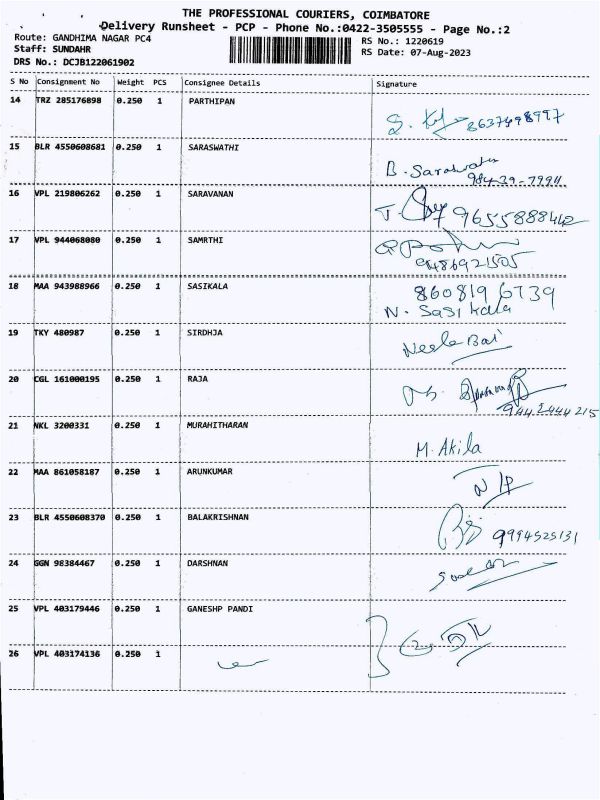 THE PROFESSIONAL COURIERS, COIMBATORE
Delivery Runsheet - PCP - Phone No.:0422-3505555 - Page No.:2
Route: GANDHIMA NAGAR PC4
RS No.: 1220619
Staff: SUNDAHR
RS Date: 07-Aug-2023
DRS No.: DCJB122061902
S No Consignment No Weight PCS Consignee Details Signature
14 TRZ 285176898 0.250 1 PARTHIPAN
8637498997
15 BLR 4550608681 0.250 1 SARASWATHI
B. Saraswathi
98439-79911
16 VPL 219806262 0.250 1 SARAVANAN
9655888442
17 VPL 944068080 0.250 1 SAMRTHI
9486921505
18 MAA 943988966 0.250 1 SASIKALA
8608196739
N. Sasikala
19 TKY 480987 0.250 1 SIRDHJA
Neela Bai
20 CGL 161000195 0.250 1 RAJA
9442444215
21 NKL 3200331 0.250 1 MURAHITHARAN
M. Akila
22 MAA 861058187 0.250 1 ARUNKUMAR
23 BLR 4550608370 0.250 1 BALAKRISHNAN
9994525131
24 GGN 98384467 0.250 1 DARSHNAN
25 VPL 403179446 0.250 1 GANESHP PANDI
26 VPL 403174136 0.250 1